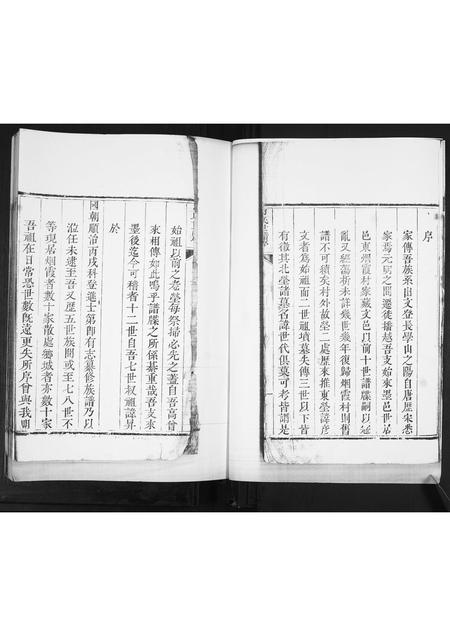 序
家傳吾族系出文登長學山之陽自唐歷宋悉
家焉元明之間遷徙播越吾支始來墨邑世居
邑東烟霞村家藏文邑以前十世譜牒嗣以寇
亂又經蕩析未詳幾世幾年復歸烟霞村則舊
譜不可續矣村外故塋二處歷來推東塋諱彥
文者為始祖而二世祖墳墓失傳三世以下皆
有徵其北塋諸墓名諱世代俱莫可考皆謂是
始祖以前之老塋每祭掃必先之蓋自吾高曾
來相傳如此嗚乎譜牒之所係綦重哉吾支來
墨後迄今可稽者十二世自吾七世叔祖諱昇
於
國朝順治丙戌科登進士第即有志纂修族譜乃以
涖任未逮至吾又歷五世族閒或至七八世不
等現居烟霞者數十家散處鄉城者亦數十家
吾祖在日常恐世數既遠更失所序曾與我